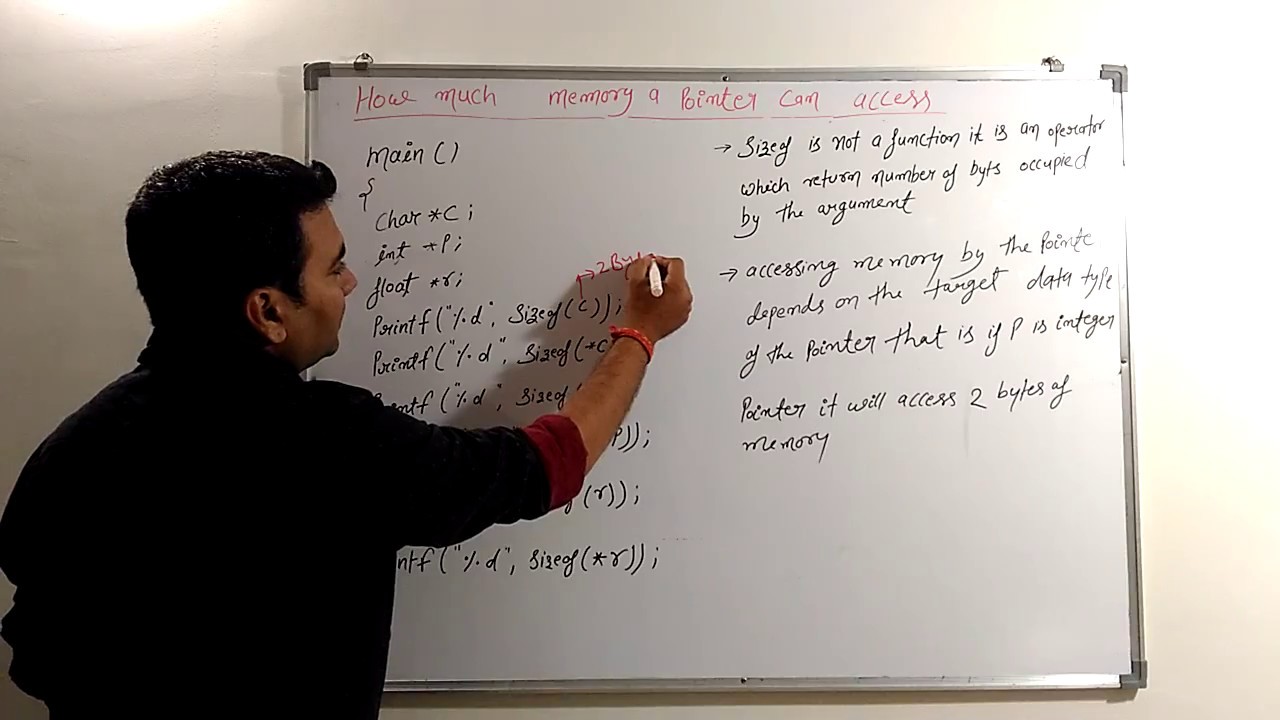 How much memory a Pointer can access
main ()
{
char *c ;
int *p;
float *r;
2 Bytes
Printf ("%d", Sizeof (c));
Printf ("%d", Sizeof (*c
Printf ("%d", Sizeof (
p));
(r));
ntf ("%d", Sizeof (*r));
→ Sizeof is not a function it is an operator
which return number of byts occupied
by the argument
→ accessing memory by the Pointe
depends on the target data type
of the Pointer that is if P is integer
Pointer it will access 2 bytes of
memory